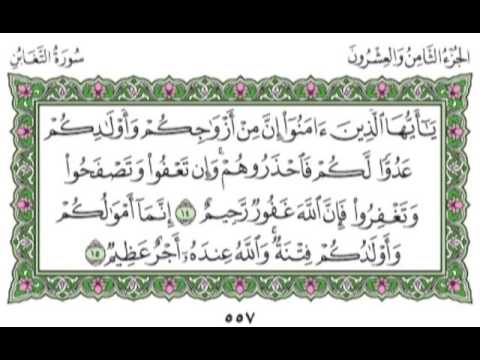 الجزء الثامن والعشرون
سورة التغابن
يَٰٓأَيُّهَا ٱلَّذِينَ ءَامَنُوٓا۟ إِنَّ مِنْ أَزْوَٰجِكُمْ وَأَوْلَٰدِكُمْ
عَدُوًّا لَّكُمْ فَٱحْذَرُوهُمْ ۚ وَإِن تَعْفُوا۟ وَتَصْفَحُوا۟
وَتَغْفِرُوا۟ فَإِنَّ ٱللَّهَ غَفُورٌ رَّحِيمٌ ١٤ إِنَّمَآ أَمْوَٰلُكُمْ
وَأَوْلَٰدُكُمْ فِتْنَةٌ ۚ وَٱللَّهُ عِندَهُۥٓ أَجْرٌ عَظِيمٌ ١٥
٥٥٧